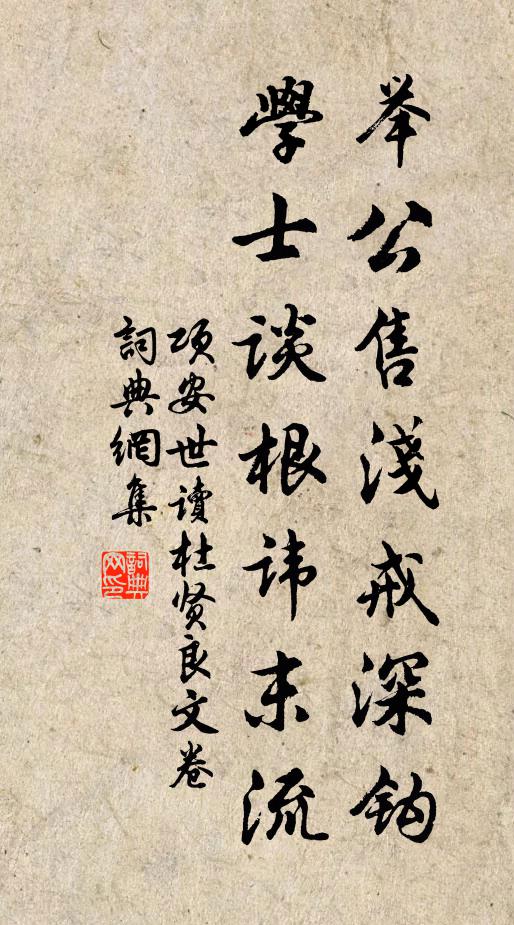 举公售淺戒深鈎
學士談根讳末流
项安世讀杜贤良文卷
詞典網集
詞典
网印